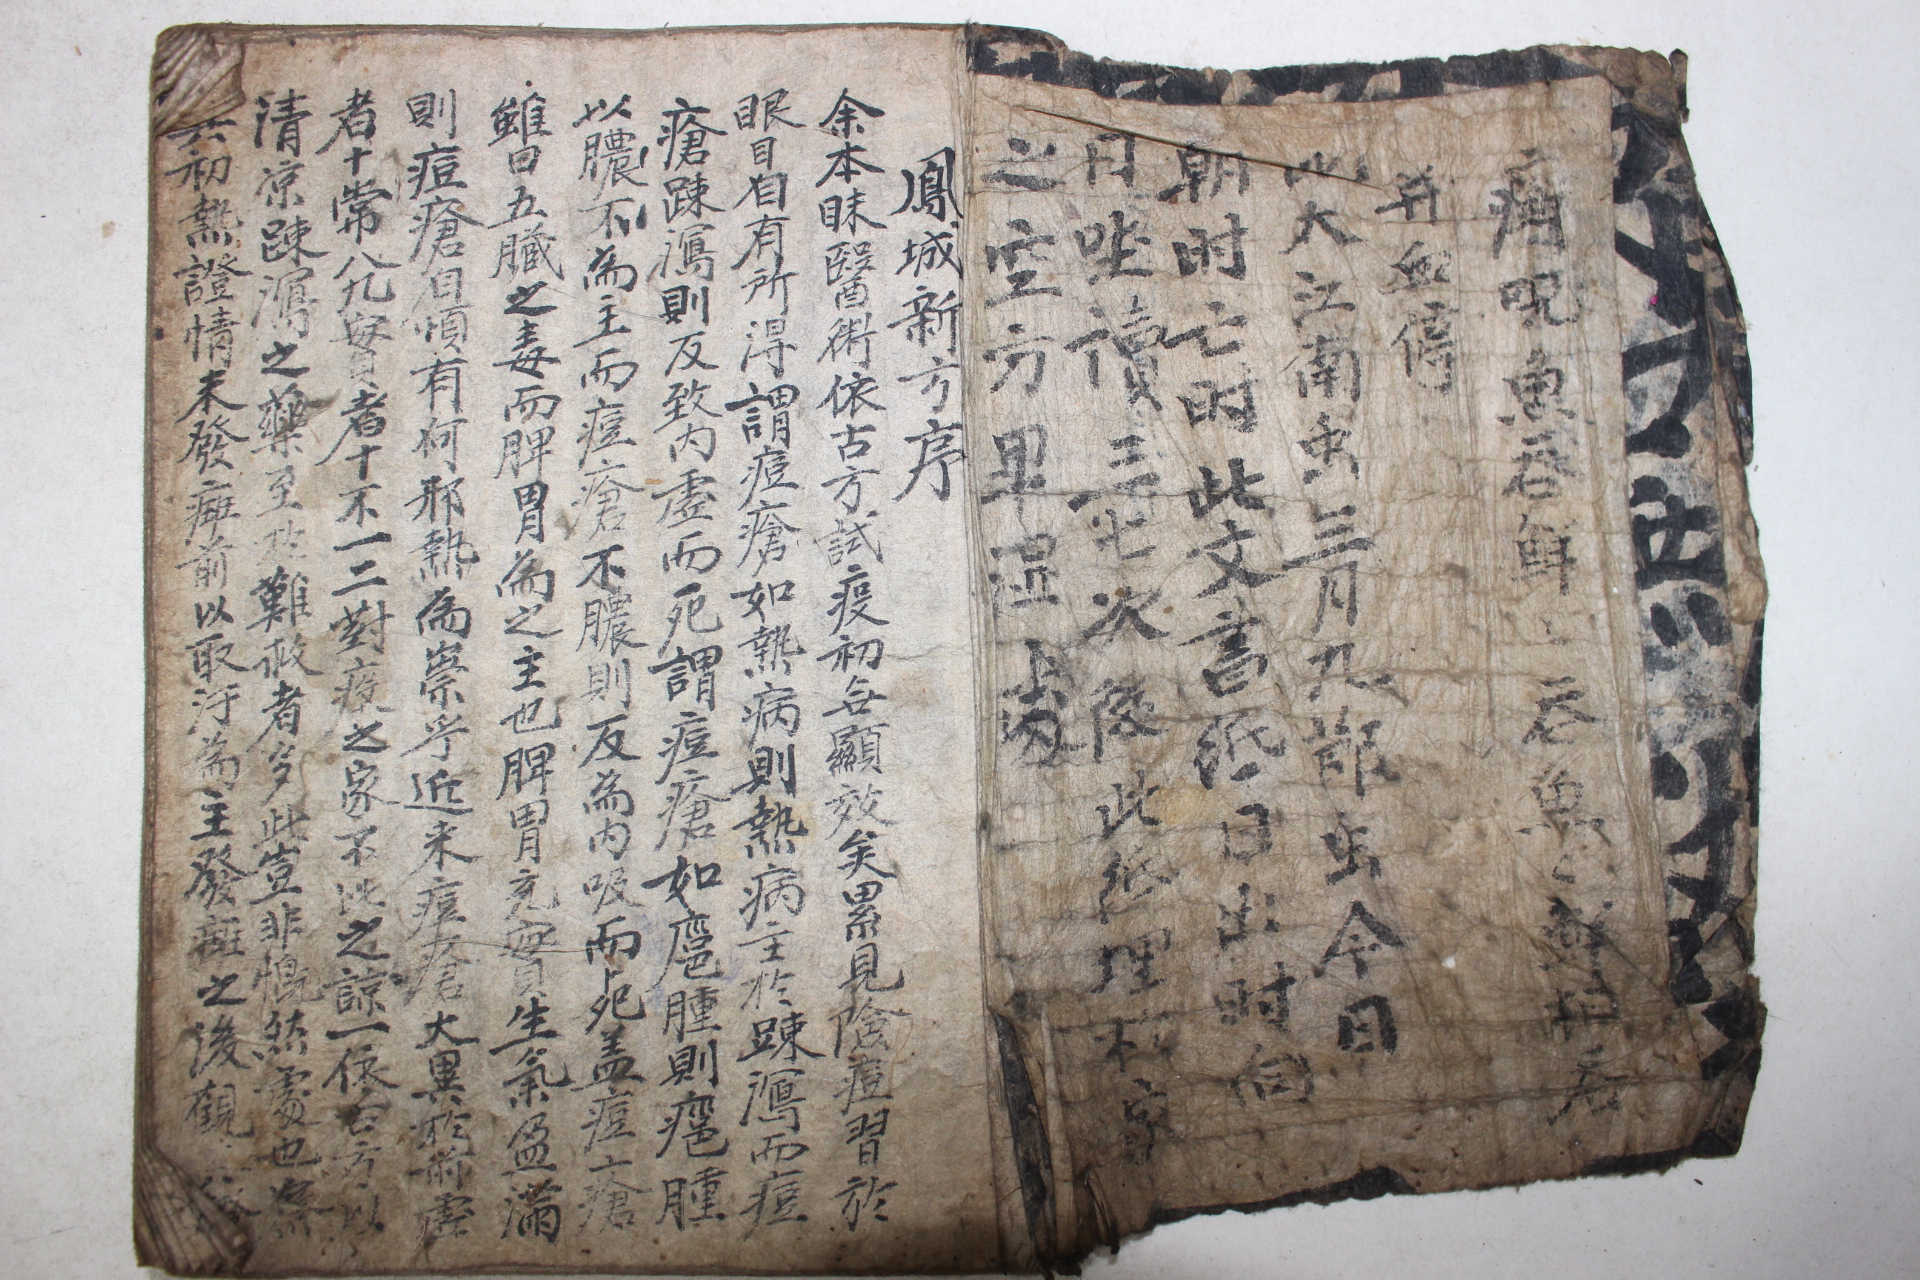 呪魚吞鮮 吞魚
并血停
大江南虫三月九節虫今日
朝时亡时此文書紙日出时向
日坐讀三七次後此紙埋
之空方卑湿上
鳳城新方序
余本昧醫術依古方試疫初無顯效矣累見陰痘習於
眼目自有所得謂痘瘡如熱病則熱病主於踈瀉而痘
瘡踈瀉則反致內虛而死謂痘瘡如瘡腫則瘡腫
以膿不為主而痘瘡不膿則反為內吸而死盖痘瘡
雖曰五臟之毒而脾胃為之主也脾胃充實生氣盈滿
則痘瘡自順有何邪熱為祟乎近来痘瘡大異於前虛
者十常八九實者十不一二對疫之家不此之諒一依古方以
清凉踈瀉之藥至於難救者多此豈非慨然處也
其初熱證情未發癍前以取汗為主發癍之後觀